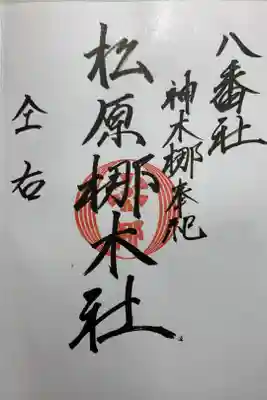 八番社
神木梛奉祀
松原梛木社
仝右